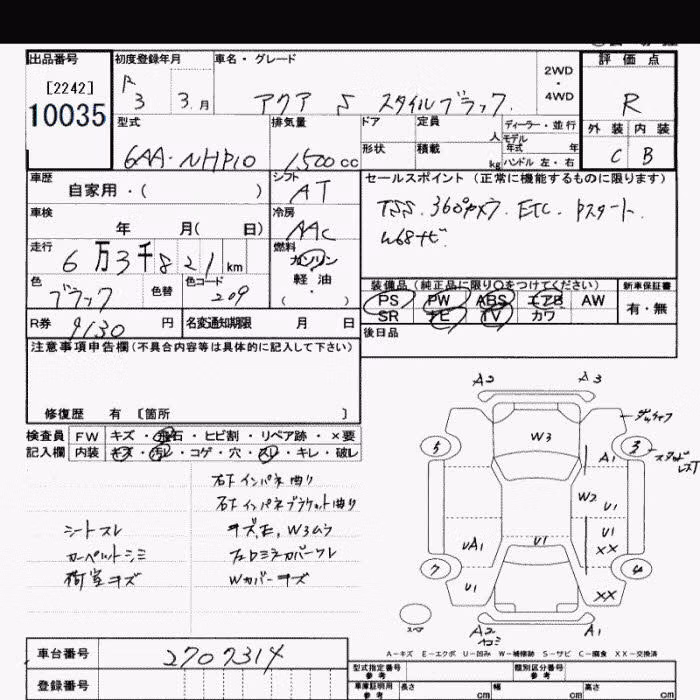 出品番号
[2242]
10035
初度登録年月
R 3 3 月
車名・グレード
アクア S スタイルブラック
2WD
・
4WD
評価点
R
外装 内装
C B
型式
6AA-NHP10
排気量
1500 cc
ドア
形状
定員
人
積載
kg
ディーラー・並行
モデル
年式 年
ハンドル 左・右
車歴
自家用・( )
シフト
AT
車検
年 月( 日)
冷房
AAC
走行
6万3千821km
燃料
ガソリン
軽油
( )
色
ブラック
色替
色コード
209
R券
9130 円
名変通知期限 月 日
セールスポイント (正常に機能するものに限ります)
TSS. 360°カメラ. ETC. Pスタート.
装備品 (純正品に限り〇をつけてください)
PS PW ABS エアB AW
SR ナビ TV カワ
新車保証書
有・無
後日品
注意事項申告欄 (不具合内容等は具体的に記入して下さい)
修復歴 有 〔箇所 〕
検査員
記入欄
FW キズ・飛石・ヒビ割・リペア跡・×要
内装 キズ・汚レ・コゲ・穴・スレ・キレ・破レ
右下インパネ曲り
右下インパネブラケット曲り
シートスレ
カーペットシミ
荷室キズ
Wカバーキズ
A2 A3
W3
5
3
A1
W2
U1
UA1
U1
U1
XX
7
4
U1
XX
スペア
A2
A1
A-キズ E-エクボ U-凹み W-補修跡 S-サビ C-腐食 XX-交換済
車台番号
2707314
登録番号
型式指定番号
参考
類別区分番号
参考
車庫証明用
参考
長さ cm
幅 cm
高さ cm